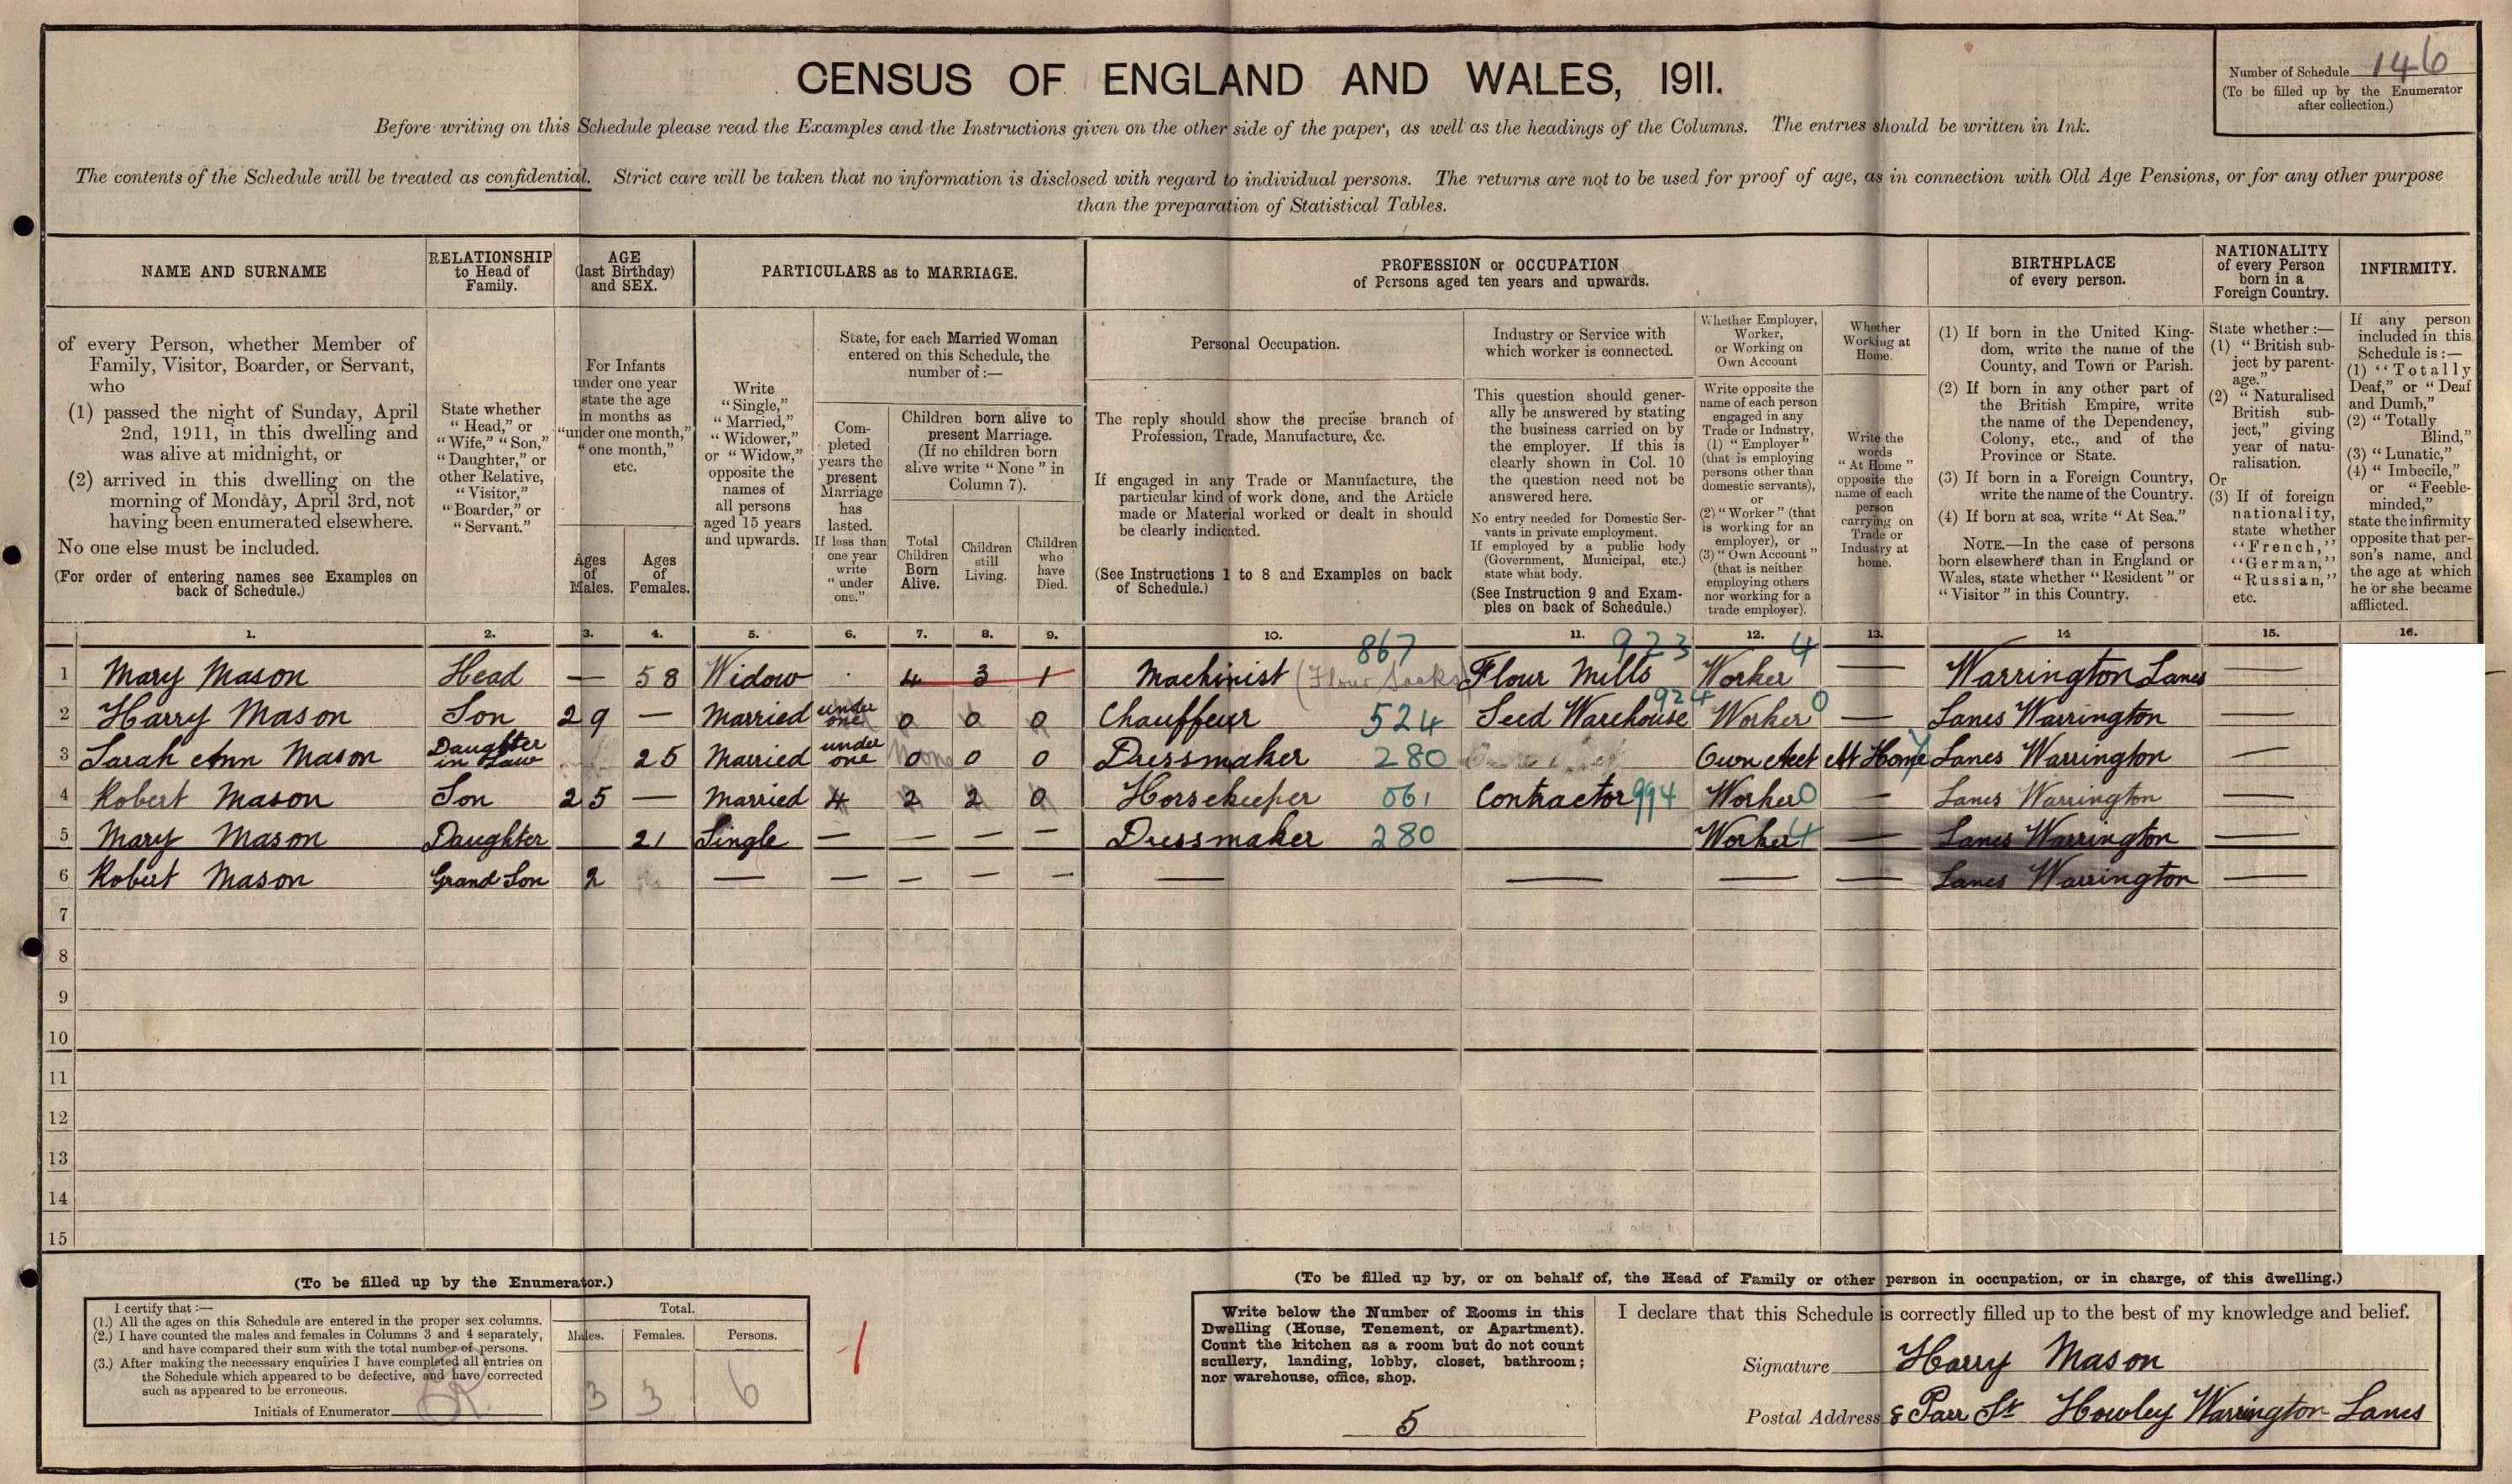 CENSUS OF ENGLAND AND WALES, 1911.
Number of Schedule 146
(To be filled up by the Enumerator
after collection.)
Before writing on this Schedule please read the Examples and the Instructions given on the other side of the paper, as well as the headings of the Columns. The entries should be written in Ink.
The contents of the Schedule will be treated as confidential. Strict care will be taken that no information is disclosed with regard to individual persons. The returns are not to be used for proof of age, as in connection with Old Age Pensions, or for any other purpose
than the preparation of Statistical Tables.
NAME AND SURNAME
of every Person, whether Member of
Family, Visitor, Boarder, or Servant,
who
(1) passed the night of Sunday, April
2nd, 1911, in this dwelling and
was alive at midnight, or
(2) arrived in this dwelling on the
morning of Monday, April 3rd, not
having been enumerated elsewhere.
No one else must be included.
(For order of entering names see Examples on
back of Schedule.)
RELATIONSHIP
to Head of
Family.
State whether
"Head," or
"Wife," "Son,"
"Daughter," or
other Relative,
"Visitor,"
"Boarder," or
"Servant."
AGE
(last Birthday)
and SEX.
For Infants
under one year
state the age
in months as
"under one month,"
"one month,"
etc.
Ages
of
Males.
Ages
of
Females.
PARTICULARS as to MARRIAGE.
Write
"Single,"
"Married,"
"Widower,"
or "Widow,"
opposite the
names of
all persons
aged 15 years
and upwards.
State, for each Married Woman
entered on this Schedule, the
number of :—
Com-
pleted
years the
present
Marriage
has
lasted.
If less than
one year
write
"under
one."
Children born alive to
present Marriage.
(If no children born
alive write "None" in
Column 7).
Total
Children
Born
Alive.
Children
still
Living.
Children
who
have
Died.
PROFESSION or OCCUPATION
of Persons aged ten years and upwards.
Personal Occupation.
The reply should show the precise branch of
Profession, Trade, Manufacture, &c.
If engaged in any Trade or Manufacture, the
particular kind of work done, and the Article
made or Material worked or dealt in should
be clearly indicated.
(See Instructions 1 to 8 and Examples on back
of Schedule.)
Industry or Service with
which worker is connected.
This question should gener-
ally be answered by stating
the business carried on by
the employer. If this is
clearly shown in Col. 10
the question need not be
answered here.
No entry needed for Domestic Ser-
vants in private employment.
If employed by a public body
(Government, Municipal, etc.)
state what body.
(See Instruction 9 and Exam-
ples on back of Schedule.)
Whether Employer,
Worker,
or Working on
Own Account
Write opposite the
name of each person
engaged in any
Trade or Industry,
(1) "Employer"
(that is employing
persons other than
domestic servants),
or
(2) "Worker" (that
is working for an
employer), or
(3) "Own Account"
(that is neither
employing others
nor working for a
trade employer).
Whether
Working at
Home.
Write the
words
"At Home"
opposite the
name of each
person
carrying on
Trade or
Industry at
home.
BIRTHPLACE
of every person.
(1) If born in the United King-
dom, write the name of the
County, and Town or Parish.
(2) If born in any other part of
the British Empire, write
the name of the Dependency,
Colony, etc., and of the
Province or State.
(3) If born in a Foreign Country,
write the name of the Country.
(4) If born at sea, write "At Sea."
NOTE.—In the case of persons
born elsewhere than in England or
Wales, state whether "Resident" or
"Visitor" in this Country.
NATIONALITY
of every Person
born in a
Foreign Country.
State whether :—
(1) "British sub-
ject by parent-
age."
(2) "Naturalised
British sub-
ject," giving
year of natu-
ralisation.
Or
(3) If of foreign
nationality,
state whether
"French,"
"German,"
"Russian,"
etc.
INFIRMITY.
If any person
included in this
Schedule is :—
(1) "Totally
Deaf," or "Deaf
and Dumb,"
(2) "Totally
Blind,"
(3) "Lunatic,"
(4) "Imbecile,"
or "Feeble-
minded,"
state the infirmity
opposite that per-
son's name, and
the age at which
he or she became
afflicted.
1. 2. 3. 4. 5. 6. 7. 8. 9. 10. 11. 12. 13. 14 15. 16.
867 923 4
1 Mary Mason Head — 58 Widow 4 3 1 Machinist (Flour Sacks) Flour Mills Worker — Warrington Lancs —
2 Harry Mason Son 29 — Married under one 0 0 0 Chauffeur 524 Seed Warehouse 924 Worker 0 — Lancs Warrington —
3 Sarah Ann Mason Daughter in Law 25 Married under one 0 0 0 Dressmaker 280 Own Acct At Home Lancs Warrington —
4 Robert Mason Son 25 — Married 4 2 2 0 Horsekeeper 061 Contractor 994 Worker 0 — Lancs Warrington
5 Mary Mason Daughter 21 Single — — — — Dressmaker 280 Worker 4 — Lancs Warrington —
6 Robert Mason Grand Son 2 — — — — — — — — — Lancs Warrington —
7
8
9
10
11
12
13
14
15
(To be filled up by the Enumerator.)
I certify that :—
(1.) All the ages on this Schedule are entered in the proper sex columns.
(2.) I have counted the males and females in Columns 3 and 4 separately,
and have compared their sum with the total number of persons.
(3.) After making the necessary enquiries I have completed all entries on
the Schedule which appeared to be defective, and have corrected
such as appeared to be erroneous.
Initials of Enumerator
Total.
Males. Females. Persons.
3 3 6
(To be filled up by, or on behalf of, the Head of Family or other person in occupation, or in charge, of this dwelling.)
Write below the Number of Rooms in this
Dwelling (House, Tenement, or Apartment).
Count the kitchen as a room but do not count
scullery, landing, lobby, closet, bathroom;
nor warehouse, office, shop.
5
I declare that this Schedule is correctly filled up to the best of my knowledge and belief.
Signature Harry Mason
Postal Address 8 Parr St Howley Warrington Lancs